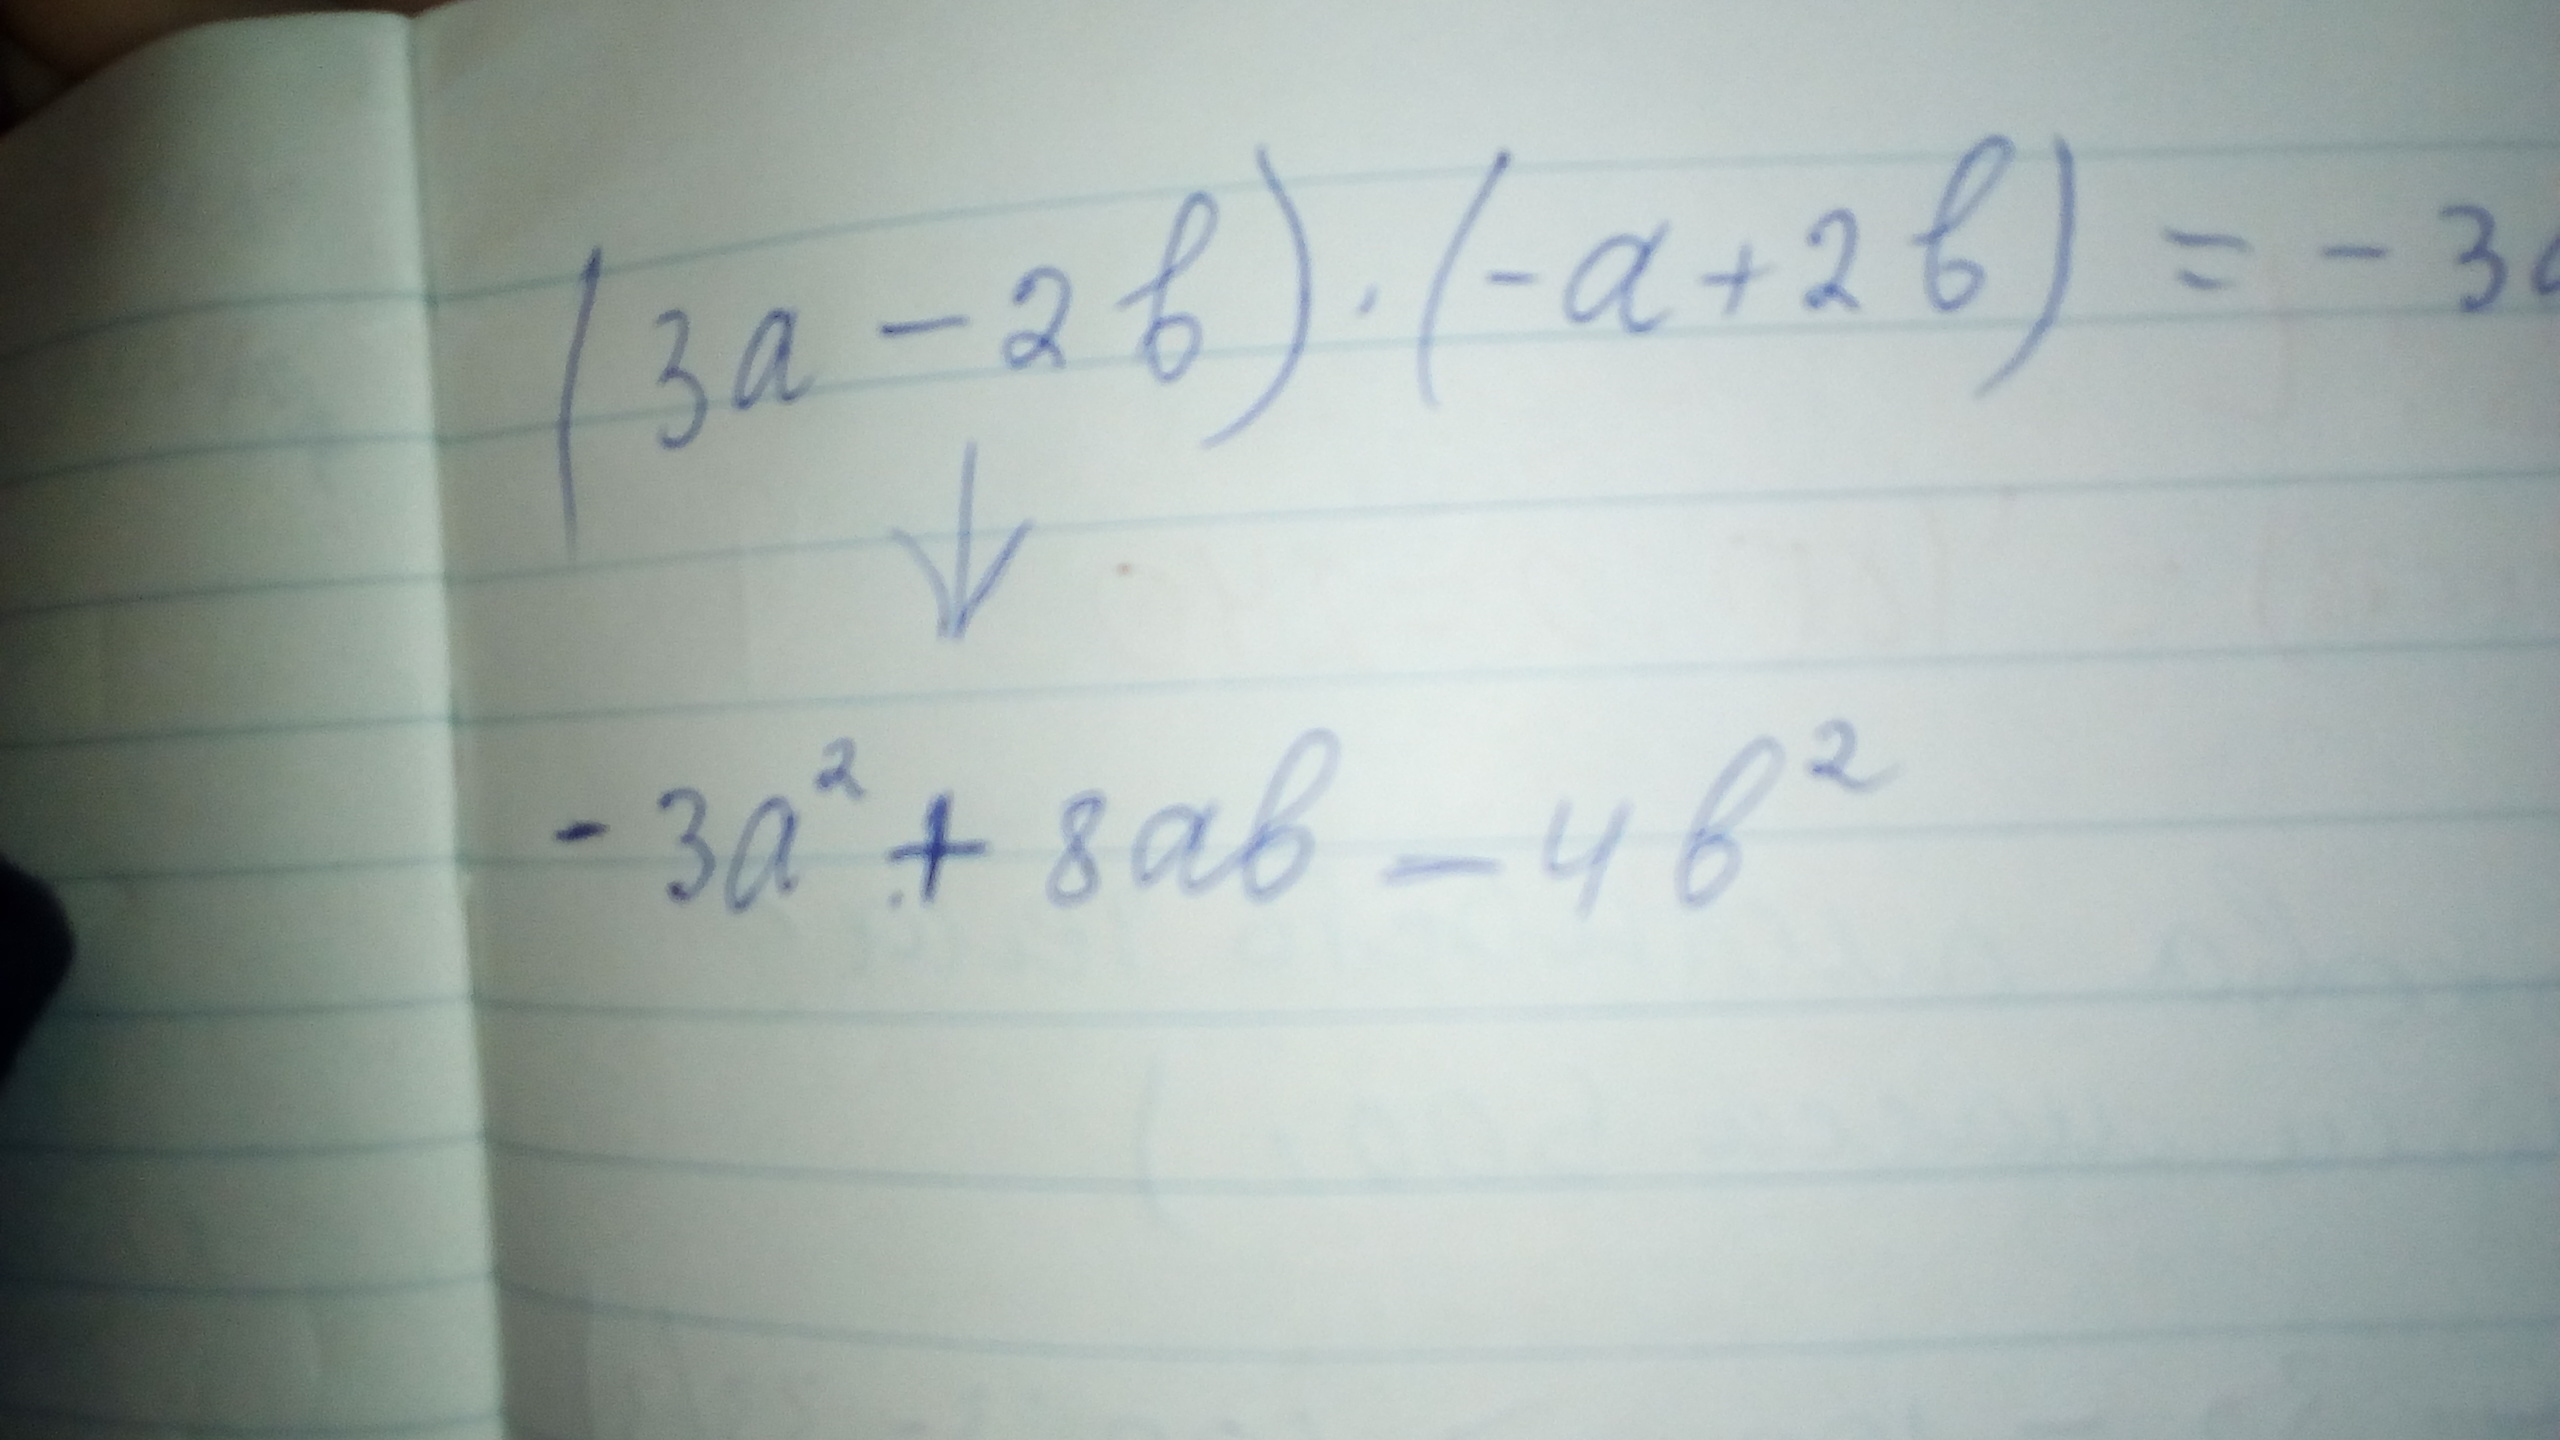 (3a - 2b) · (-a + 2b) = - 3
↓
- 3a² + 8ab - 4b²